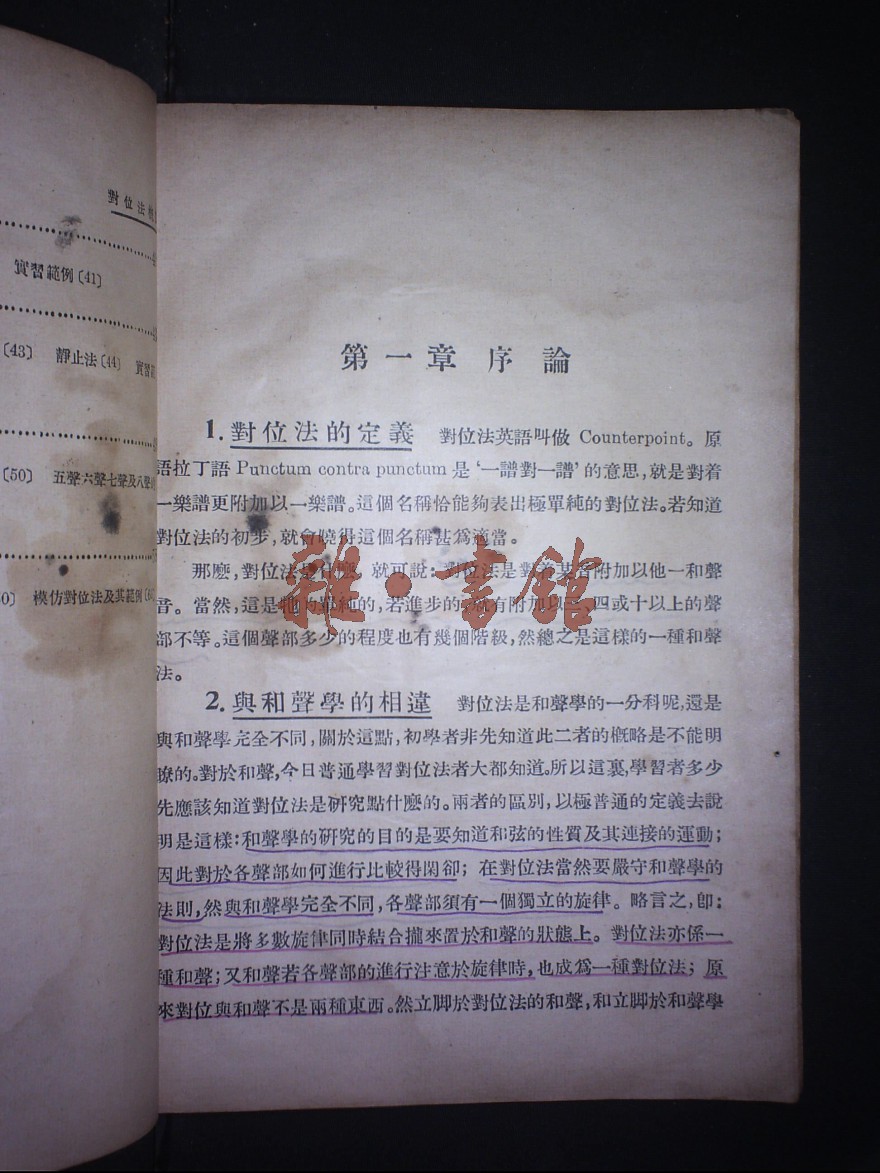 對位法
實習範例〔41〕
〔43〕 靜止法〔44〕 實習
〔50〕 五聲六聲七聲及八聲
0〕 模仿對位法及其範例
第一章 序論
1. 對位法的定義 對位法英語叫做 Counterpoint。原
語拉丁語 Punctum contra punctum 是‘一譜對一譜’的意思,就是對着
一樂譜更附加以一樂譜。這個名稱恰能夠表出極單純的對位法。若知道
對位法的初步,就會曉得這個名稱甚爲適當。
那麽,對位法是什麽 就可說:對位法是對着某音附加以他一和聲
音。當然,這是 單純的,若進步的, 有附加以三、四或十以上的聲
部不等。這個聲部多少的程度也有幾個階級,然總之是這樣的一種和聲
法。
2. 與和聲學的相違 對位法是和聲學的一分科呢,還是
與和聲學完全不同,關於這點,初學者非先知道此二者的概略是不能明
瞭的。對於和聲,今日普通學習對位法者大都知道。所以這裏,學習者多少
先應該知道對位法是硏究點什麽的。兩者的區別,以極普通的定義去說
明是這樣:和聲學的硏究的目的是要知道和弦的性質及其連接的運動;
因此對於各聲部如何進行比較得閑卻;在對位法當然要嚴守和聲學的
法則,然與和聲學完全不同,各聲部須有一個獨立的旋律。略言之,卽:
對位法是將多數旋律同時結合攏來置於和聲的狀態上。對位法亦係一
種和聲;又和聲若各聲部的進行注意於旋律時,也成爲一種對位法;原
來對位與和聲不是兩種東西。然立脚於對位法的和聲,和立脚於和聲學
雜·書館